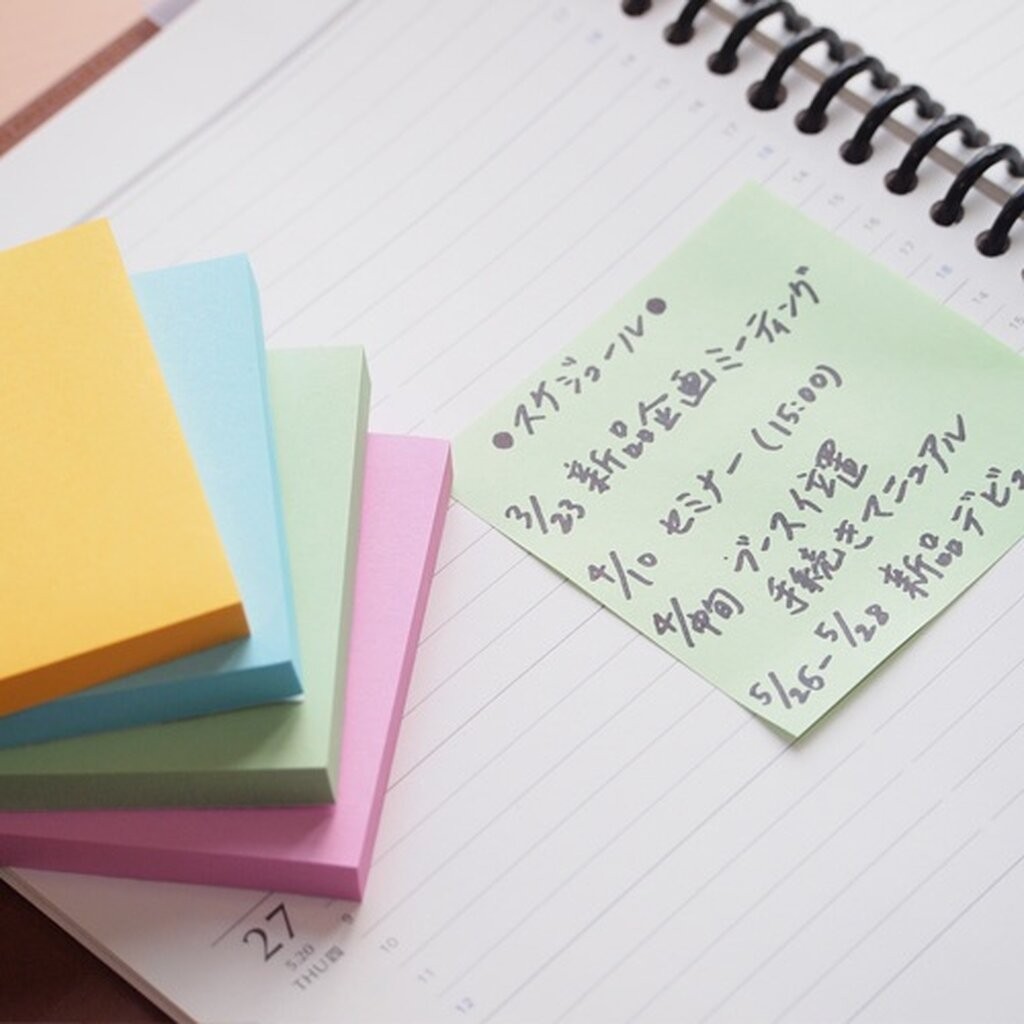 ●スケジュール●
3/23 新品企画ミーティング
4/10 セミナー (15:00)
4/中旬 ブース位置
手続きマニュアル
5/26-5/28 新品デビュ
27
5.30
THU
9
10
11
12